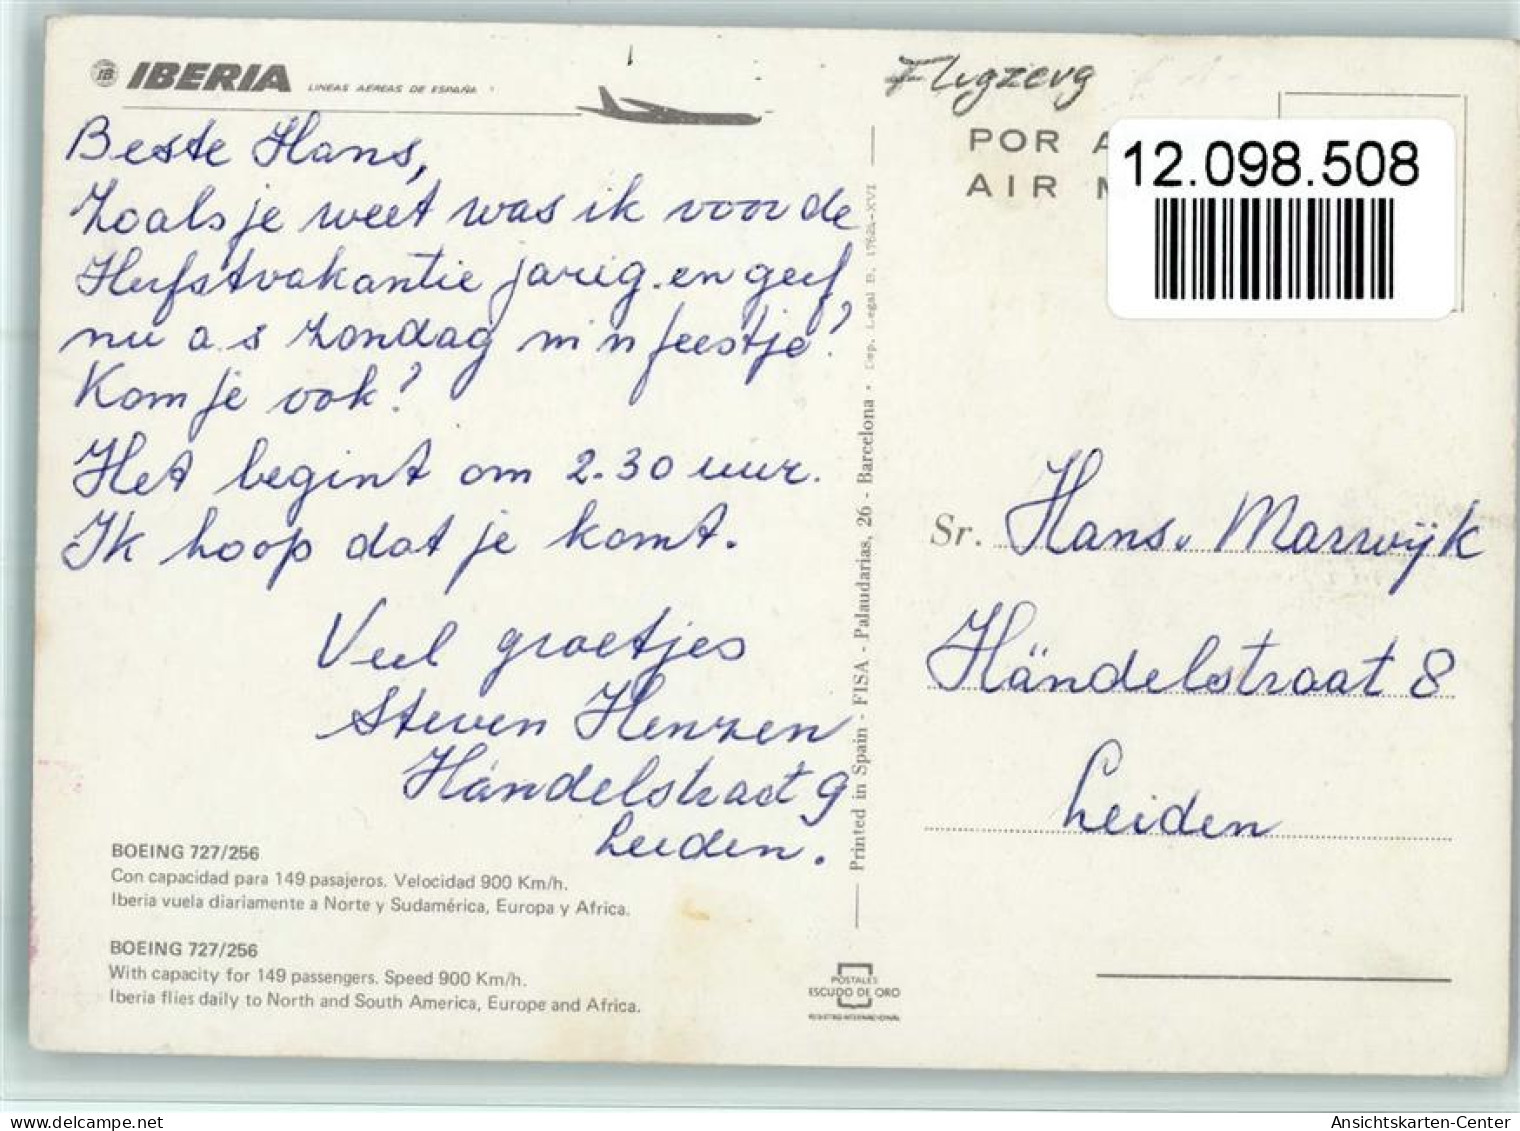 IB IBERIA LINEAS AEREAS DE ESPAÑA
Beste Hans,
Zoals je weet was ik voor de
Herfstvakantie jarig. en geef
nu a.s zondag m'n feestje!
Kom je ook?
Het begint om 2.30 uur.
Ik hoop dat je komt.
Veel groetjes
Steven Henzen
Händelstraat 9
Leiden.
BOEING 727/256
Con capacidad para 149 pasajeros. Velocidad 900 Km/h.
Iberia vuela diariamente a Norte y Sudamérica, Europa y Africa.
BOEING 727/256
With capacity for 149 passengers. Speed 900 Km/h.
Iberia flies daily to North and South America, Europe and Africa.
Printed in Spain - FISA - Palaudarias, 26 - Barcelona • Dep. Legal B. 17624-XVI
POSTALES
ESCUDO DE ORO
REGISTRO INTERNACIONAL
Flugzeug
POR A
AIR M
12.098.508
Sr. Hans v Marwijk
Händelstraat 8
Leiden
delcampe.net
Ansichtskarten-Center